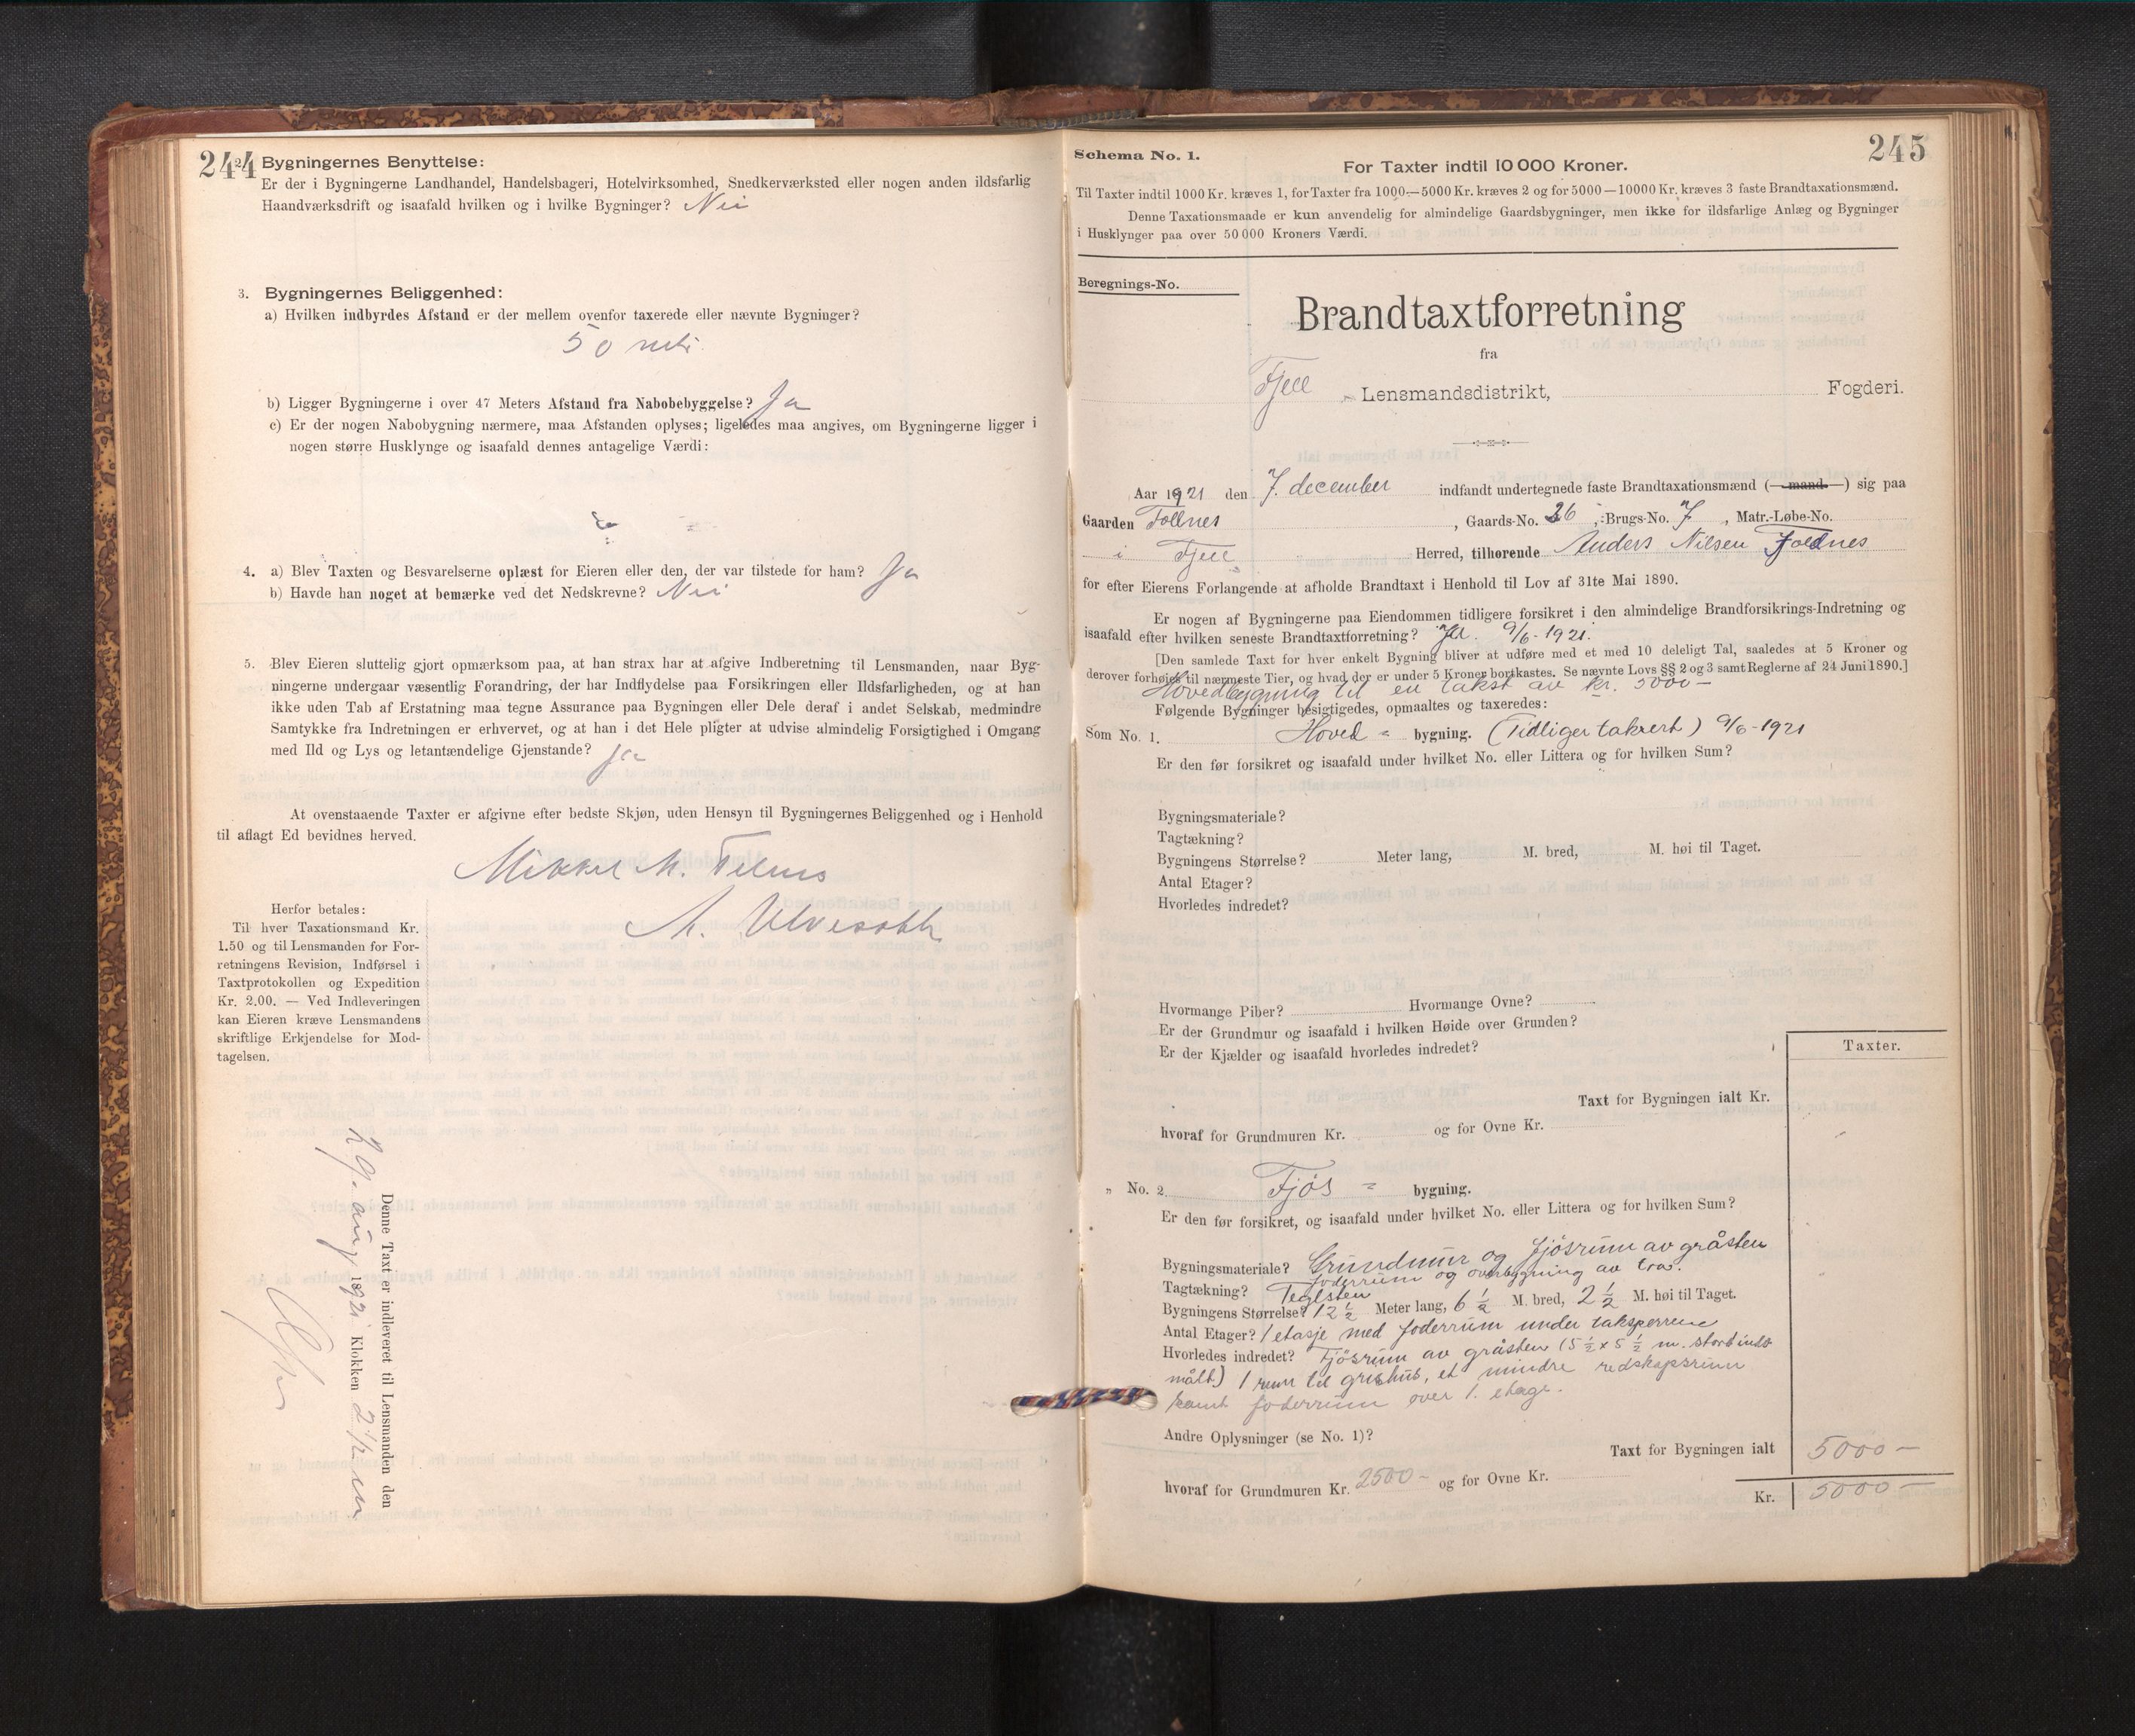 244
Bygningernes Benyttelse:
Er der i Bygningerne Landhandel, Handelsbageri, Hotelvirksomhed, Snedkerværksted eller nogen anden ildsfarlig
Haandværksdrift og isaafald hvilken og i hvilke Bygninger? Nei
3. Bygningernes Beliggenhed:
a) Hvilken indbyrdes Afstand er der mellem ovenfor taxerede eller nævnte Bygninger?
50 mtr.
b) Ligger Bygningerne i over 47 Meters Afstand fra Nabobebyggelse? Ja
c) Er der nogen Nabobygning nærmere, maa Afstanden oplyses; ligeledes maa angives, om Bygningerne ligger i
nogen større Husklynge og isaafald dennes antagelige Værdi:
4. a) Blev Taxten og Besvarelserne oplæst for Eieren eller den, der var tilstede for ham? Ja
b) Havde han noget at bemærke ved det Nedskrevne? Nei
5. Blev Eieren sluttelig gjort opmærksom paa, at han strax har at afgive Indberetning til Lensmanden, naar Byg-
ningerne undergaar væsentlig Forandring, der har Indflydelse paa Forsikringen eller Ildsfarligheden, og at han
ikke uden Tab af Erstatning maa tegne Assurance paa Bygningen eller Dele deraf i andet Selskab, medmindre
Samtykke fra Indretningen er erhvervet, og at han i det Hele pligter at udvise almindelig Forsigtighed i Omgang
med Ild og Lys og letantændelige Gjenstande? Ja
At ovenstaaende Taxter er afgivne efter bedste Skjøn, uden Hensyn til Bygningernes Beliggenhed og i Henhold
til aflagt Ed bevidnes herved.
Mikkel M.
A. Ulvesæth
Herfor betales:
Til hver Taxationsmand Kr.
1.50 og til Lensmanden for For-
retningens Revision, Indførsel i
Taxtprotokollen og Expedition
Kr. 2.00. — Ved Indleveringen
kan Eieren kræve Lensmandens
skriftlige Erkjendelse for Mod-
tagelsen.
Denne Taxt er indleveret til Lensmanden den
29. aug 1921 Klokken 2 1/2 em
245
Schema No. 1.
For Taxter indtil 10 000 Kroner.
Til Taxter indtil 1000 Kr. kræves 1, for Taxter fra 1000—5000 Kr. kræves 2 og for 5000—10000 Kr. kræves 3 faste Brandtaxationsmænd.
Denne Taxationsmaade er kun anvendelig for almindelige Gaardsbygninger, men ikke for ildsfarlige Anlæg og Bygninger
i Husklynger paa over 50 000 Kroners Værdi.
Beregnings-No.
Brandtaxtforretning
fra
Fjell Lensmandsdistrikt, Fogderi.
Aar 1921 den 7. december indfandt undertegnede faste Brandtaxationsmænd (—mand—) sig paa
Gaarden Follnes, Gaards-No. 26, Brugs-No. 7, Matr.-Løbe-No.
i Fjell Herred, tilhørende Anders Nilsen Foldnes
for efter Eierens Forlangende at afholde Brandtaxt i Henhold til Lov af 31te Mai 1890.
Er nogen af Bygningerne paa Eiendommen tidligere forsikret i den almindelige Brandforsikrings-Indretning og
isaafald efter hvilken seneste Brandtaxtforretning? Ja. 9/6-1921.
[Den samlede Taxt for hver enkelt Bygning bliver at udføre med et med 10 deleligt Tal, saaledes at 5 Kroner og
derover forhøies til nærmeste Tier, og hvad der er under 5 Kroner bortkastes. Se nævnte Lovs §§ 2 og 3 samt Reglerne af 24 Juni 1890.]
Hovedbygning til en takst av kr. 5000 —
Følgende Bygninger besigtigedes, opmaaltes og taxeredes:
Som No. 1. Hoved = bygning. (Tidliger taksert) 9/6-1921
Er den før forsikret og isaafald under hvilket No. eller Littera og for hvilken Sum?
Bygningsmateriale?
Tagtækning?
Bygningens Størrelse? Meter lang, M. bred, M. høi til Taget.
Antal Etager?
Hvorledes indredet?
Hvormange Piber? Hvormange Ovne?
Er der Grundmur og isaafald i hvilken Høide over Grunden?
Er der Kjælder og isaafald hvorledes indredet?
Taxter.
Taxt for Bygningen ialt Kr.
hvoraf for Grundmuren Kr. og for Ovne Kr.
„ No. 2. Fjøs = bygning.
Er den før forsikret, og isaafald under hvilket No. eller Littera og for hvilken Sum?
Bygningsmateriale? Grundmur og fjøsrum av gråsten
foderrum og overbygning av træ.
Tagtækning? Teglsten
Bygningens Størrelse? 12 1/2 Meter lang, 6 1/2 M. bred, 2 1/2 M. høi til Taget.
Antal Etager? 1 etasje med foderrum under taksperrene
Hvorledes indredet? Fjøsrum av gråsten (5 1/2 x 5 1/2 m. stort indv
målt) 1 rum til grishus, et mindre redskapsrum
samt foderrum over 1. etage.
Andre Oplysninger (se No. 1)?
Taxt for Bygningen ialt 5000 —
hvoraf for Grundmuren Kr. 2500 — og for Ovne Kr.
Kr. 5000 —